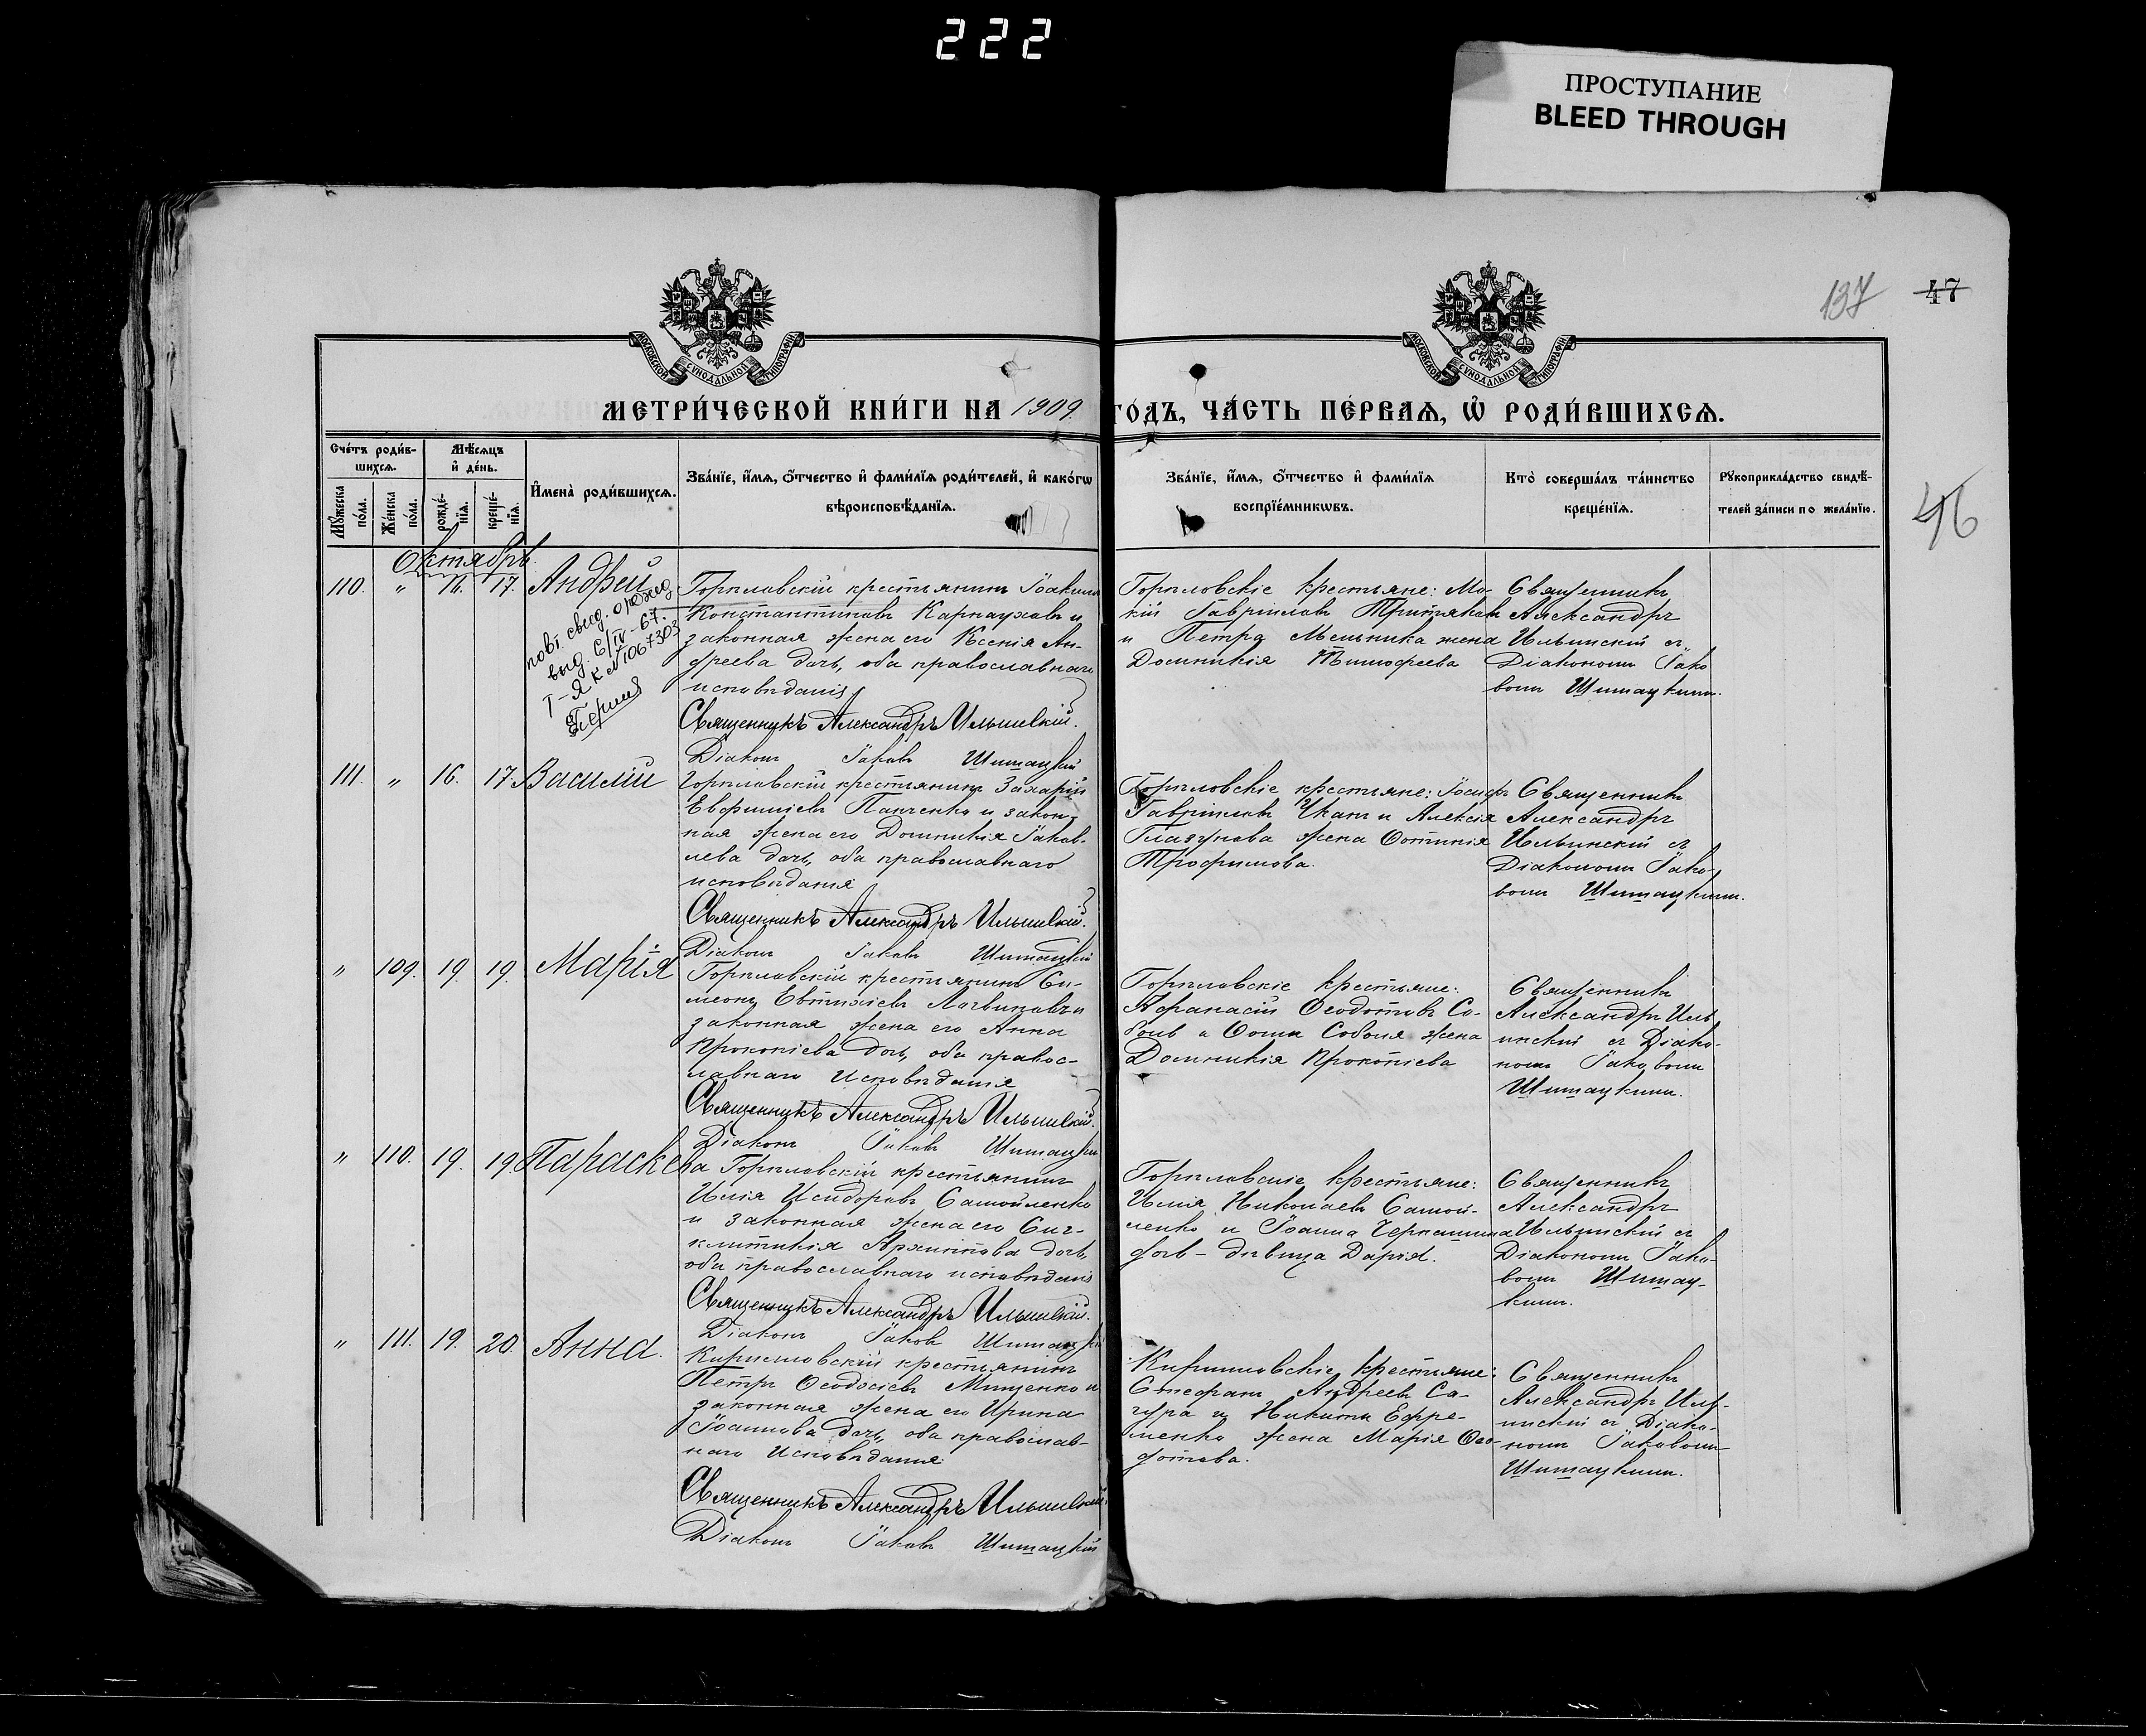 222
ПРОСТУПАНИЕ
BLEED THROUGH
137 47
46
МОСКОВСКОЙ СУНОДАЛЬНОЙ ТИПОГРАФІИ
МОСКОВСКОЙ СУНОДАЛЬНОЙ ТИПОГРАФІИ
МЕТРИ́ЧЕСКОЙ КНИ́ГИ НА 1909 ГО́ДЪ, ЧА́СТЬ ПЕ́РВАѦ, Ѡ҆ РОДИ́ВШИХСѦ.
Сче́тъ роди́в-
шихсѧ.
Мѣ́сѧцъ
и҆ де́нь.
Мꙋ́жеска
по́ла.
Же́нска
по́ла.
рожде́-
нїѧ.
креще́-
нїѧ.
И҆мена̀ роди́вшихсѧ.
Зва́нїе, и҆́мѧ, ѻ҆́тчество и҆ фами́лїѧ роди́телей, и҆ како́гѡ
вѣроисповѣ́данїѧ.
Зва́нїе, и҆́мѧ, ѻ҆́тчество и҆ фами́лїѧ
воспрїе́мникѡвъ.
Кто̀ соверша́лъ та́инство
креще́нїѧ.
Рꙋкоприкла́дство свидѣ́-
телей за́писи по жела́нїю.
Октябрь
110. " 16. 17. Андрей
повт. свид. о рожд.
выд. 6/IV-67.
I-Я К №1067303
Горѣловскій крестьянинъ Іоакимъ
Константиновъ Карнауховъ и
законная жена его Ксенія Ан-
дреева дочь, оба православнаго
исповѣданія
Священникъ Александръ Ильинскій.
Діаконъ Іаковъ Шишацкій
Горѣловскіе крестьяне: Мо-
кій Гавріиловъ
и Петра Мельника жена
Домникія Тимофеева
Священникъ
Александръ
Ильинскій съ
Діакономъ Іако
вомъ Шишацкимъ.
111. " 16. 17. Василій
Горѣловскій крестьянинъ Захарій
Евфиміевъ Панченко и закон-
ная жена его Домникія Іаков-
лева дочь, оба православнаго
исповѣданія
Священникъ Александръ Ильинскій.
Діаконъ Іаковъ Шишацкій
Горѣловскіе крестьяне: Іосифъ
Гавріиловъ и Алексія
Глазунова жена Фотинія
Трофимова.
Священникъ
Александръ
Ильинскій съ
Діакономъ Іако-
вомъ Шишацкимъ.
" 109. 19. 19. Марія
Горѣловскій крестьянинъ Си-
меонъ Евтихіевъ Логвиновъ и
законная жена его Анна
Прокопіева дочь, оба правос-
лавнаго исповѣданія
Священникъ Александръ Ильинскій.
Діаконъ Іаковъ Шишацкій
Горѣловскіе крестьяне:
Афанасій Ѳеодотовъ Со-
боль и Ѳомы Соболя жена
Домникія Прокопіева
Священникъ
Александръ Иль
инскій съ Діако-
номъ Іаковомъ
Шишацкимъ.
" 110. 19. 19. Параскева
Горѣловскій крестьянинъ
Илія Исидоровъ Самойленко
и законная жена его Син-
клитикія Архиппова дочь,
оба православнаго исповѣданія
Священникъ Александръ Ильинскій.
Діаконъ Іаковъ Шишацкій
Горѣловскіе крестьяне:
Илія Николаевъ Самой-
ленко и Іоанна Черкашина
дочь - дѣвица Дарія.
Священникъ
Александръ
Ильинскій съ
Діакономъ Іако-
вомъ Шишац-
кимъ.
" 111. 19. 20. Анна.
Кирилловскій крестьянинъ
Петръ Ѳеодосіевъ Мищенко и
законная жена его Ирина
Іоаннова дочь, оба православ-
наго исповѣданія
Священникъ Александръ Ильинскій
Діаконъ Іаковъ Шишацкій
Кирилловскіе крестьяне:
Стефанъ Андреевъ Са-
чура и Никиты Ефре-
менко жена Марія Ѳео-
дотова.
Священникъ
Александръ Иль-
инскій съ Діако-
номъ Іаковомъ
Шишацкимъ.